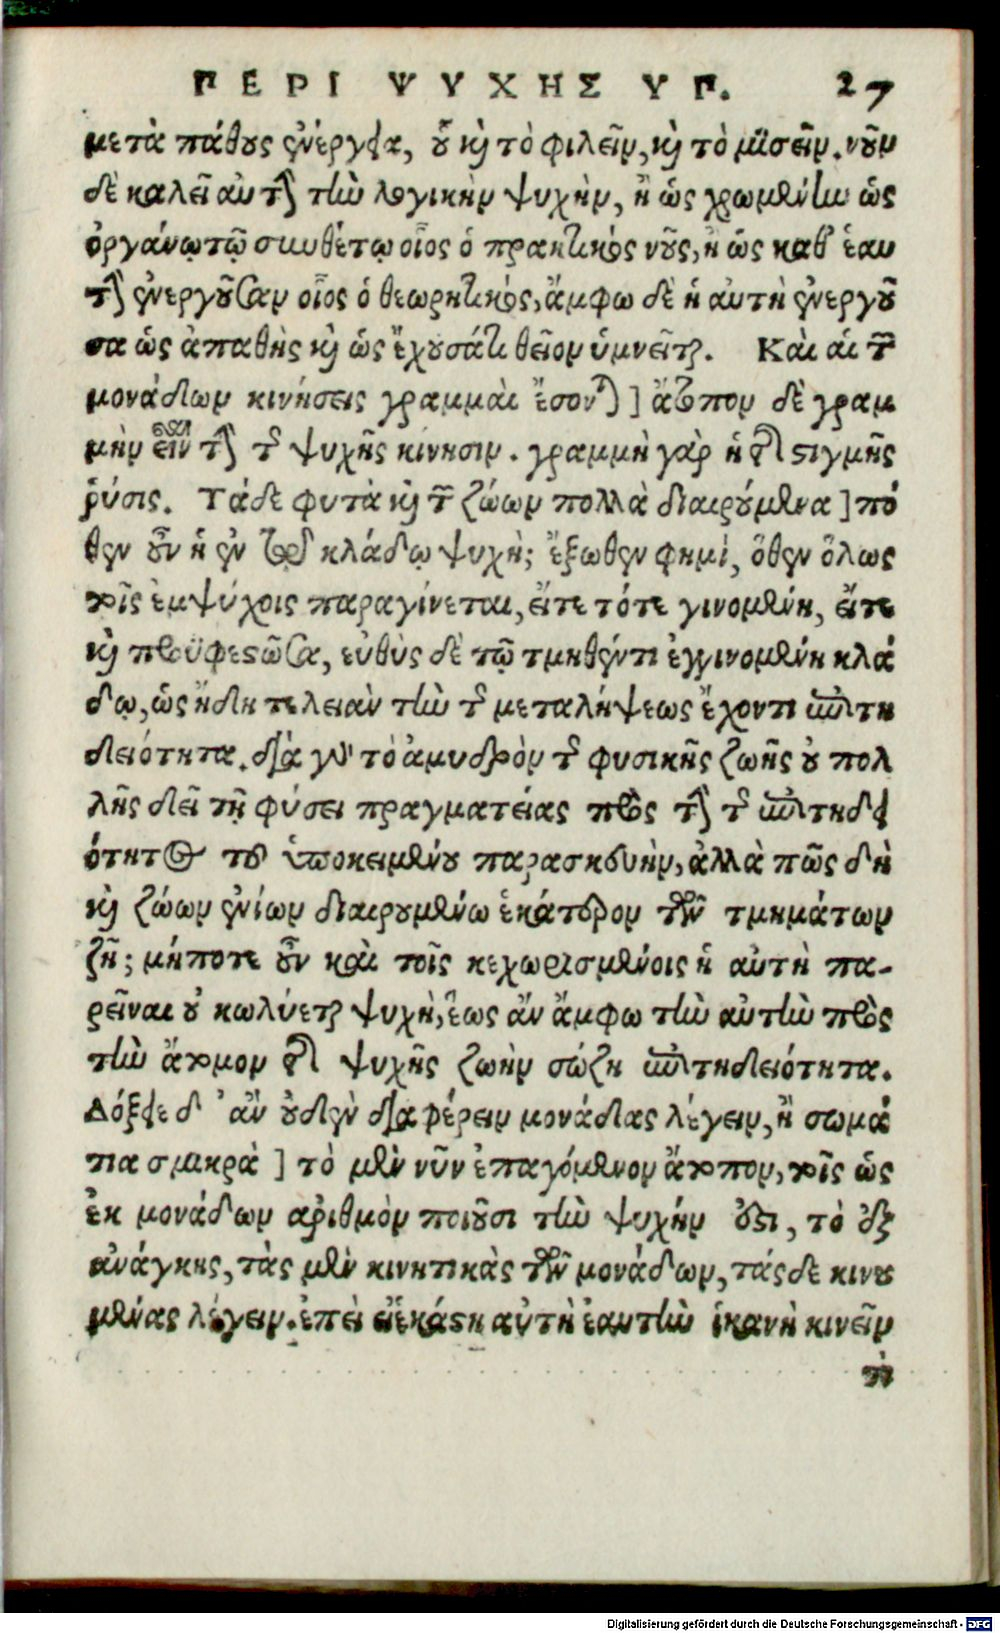 ΠΕΡΙ ΨΥΧΗΣ ΥΠ. 27
μετὰ πάθους ἐνέργεια, οὗ καὶ τὸ φιλεῖν, καὶ τὸ μισεῖν. νοῦν
δὲ καλεῖ αὐτὴν τὴν λογικὴν ψυχὴν, ἢ ὡς χρωμένην ὡς
ὀργάνῳ τῷ συνθέτῳ οἷος ὁ πρακτικὸς νοῦς, ἢ ὡς καθ' ἑαυ
τὴν ἐνεργοῦσαν οἷος ὁ θεωρητικὸς, ἄμφω δὲ ἡ αὐτὴ ἐνεργοῦ
σα ὡς ἀπαθὴς καὶ ὡς ἔχουσά τι θεῖον ὑμνεῖται. Καὶ αἱ τῶν
μονάδων κινήσεις γραμμαὶ ἔσονται] ἄτοπον δὲ γραμ
μὴν εἶναι τὴν τῆς ψυχῆς κίνησιν. γραμμὴ γὰρ ἡ τῆς στιγμῆς
ῥύσις. Τά δε φυτὰ καὶ τῶν ζώων πολλὰ διαιρούμενα] πό
θεν οὖν ἡ ἐν τῷ κλάδῳ ψυχὴ; ἔξωθεν φημὶ, ὅθεν ὅλως
τοῖς ἐμψύχοις παραγίνεται, εἴτε τότε γινομένη, εἴτε
καὶ προϋφεστῶσα, εὐθὺς δὲ τῷ τμηθέντι ἐγγινομένη κλά
δῳ, ὡς ἤδη τελείαν τὴν τῆς μεταλήψεως ἔχοντι ἐπιτη
δειότητα. διὰ γὰρ τὸ ἀμυδρὸν τῆς φυσικῆς ζωῆς οὐ πολ
λῆς δεῖ τῇ φύσει πραγματείας πρὸς τὴν τῆς ἐπιτηδει
ότητος τοῦ ὑποκειμένου παρασκευὴν, ἀλλὰ πῶς δὴ
καὶ ζώων ἐνίων διαιρουμένων ἑκάτερον τῶν τμημάτων
ζῆ; μήποτε οὖν καὶ τοῖς κεχωρισμένοις ἡ αὐτὴ πα-
ρεῖναι οὐ κωλύεται ψυχὴ, ἕως ἂν ἄμφω τὴν αὐτὴν πρὸς
τὴν ἄτομον τῆς ψυχῆς ζωὴν σώζῃ ἐπιτηδειότητα.
Δόξειε δ' ἂν οὐδὲν διαφέρειν μονάδας λέγειν, ἢ σωμά
τια σμικρὰ] τὸ μὲν νῦν ἐπαγόμενον ἄτοπον, τοῖς ὡς
ἐκ μονάδων ἀριθμὸν ποιοῦσι τὴν ψυχήν ἐστι, τὸ ἐξ
ἀνάγκης, τὰς μὲν κινητικὰς τῶν μονάδων, τάς δε κινου
μένας λέγειν. ἐπεὶ εἰ ἑκάστη αὐτὴ ἑαυτὴν ἱκανὴ κινεῖν
ἢ
Digitalisierung gefördert durch die Deutsche Forschungsgemeinschaft - DFG